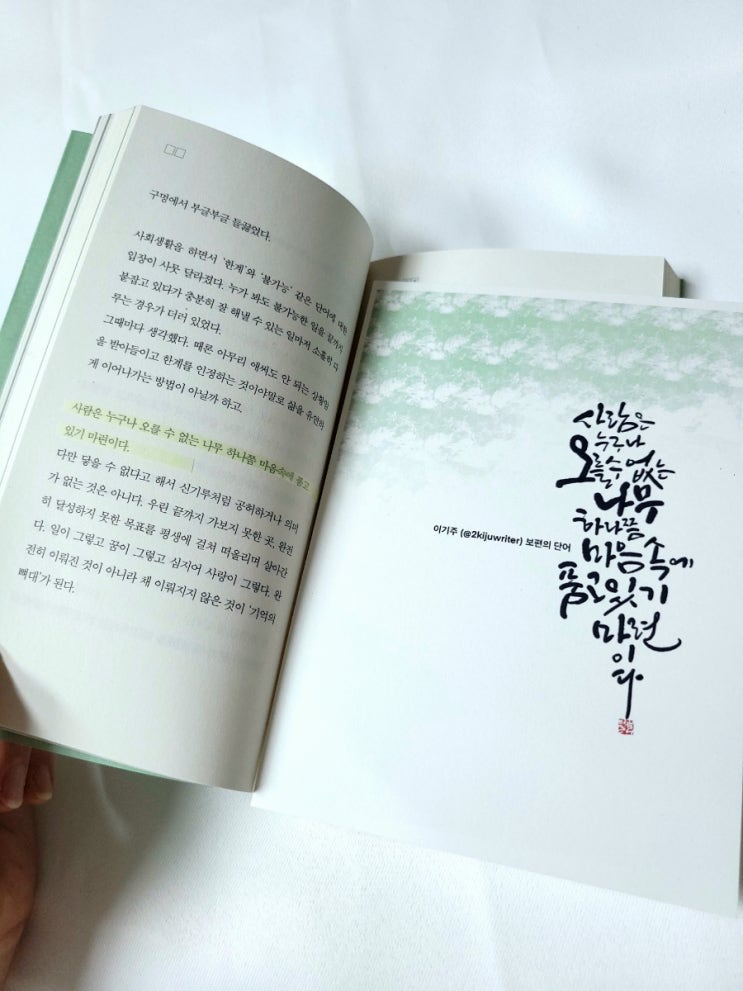 구멍에서 부글부글 들끓었다.
사회생활을 하면서 '한계'와 '불가능' 같은 단어에 대한
입장이 사뭇 달라졌다. 누가 봐도 불가능한 일을 끝까지
붙잡고 있다가 충분히 잘 해낼 수 있는 일마저 소홀히 다
루는 경우가 더러 있었다.
그때마다 생각했다. 때론 아무리 애써도 안 되는 상황임
을 받아들이고 한계를 인정하는 것이야말로 삶을 유연하
게 이어나가는 방법이 아닐까 하고.
사람은 누구나 오를 수 없는 나무 하나쯤 마음속에 품고
있기 마련이다.
다만 닿을 수 없다고 해서 신기루처럼 공허하거나 의미
가 없는 것은 아니다. 우린 끝까지 가보지 못한 곳, 완전
히 달성하지 못한 목표를 평생에 걸쳐 떠올리며 살아간
다. 일이 그렇고 꿈이 그렇고 심지어 사랑이 그렇다. 완
전히 이뤄진 것이 아니라 채 이뤄지지 않은 것이 '기억의
뼈대'가 된다.
사람은
누구나
오를수없는
나무
하나쯤
마음속에
품고있기
마련
이
다
이기주 (@2kijuwriter) 보편의 단어